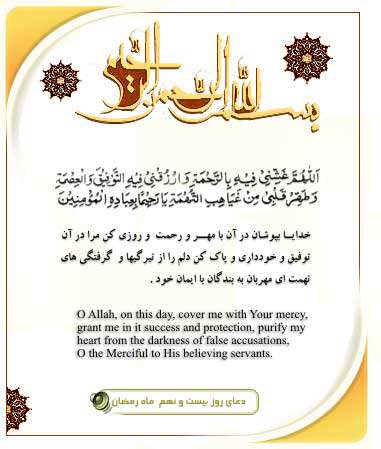 بسم الله الرحمن الرحیم
اَللّهُمَّ غَشِّنی فیهِ بِالرَّحْمَةِ وَ ارْزُقْنی فیهِ التَّوْفیقَ وَالْعِصْمَةَ
وَ طَهِّرْ قَلْبی مِنْ غَیاهِبِ التُّهْمَةِ یا رَحیماً بِعِبادِهِ الْمُؤْمِنینَ
خدایـا بپوشان در آن با مهـر و رحمت و روزی کن مرا در آن
توفیق و خودداری و پاک کن دلم را از تیرگیها و گرفتگی های
تهمت ای مهربان به بندگان با ایمان خود .
O Allah, on this day, cover me with Your mercy,
grant me in it success and protection, purify my
heart from the darkness of false accusations,
O the Merciful to His believing servants.
دعای روز بیست و نهم ماه رمضان